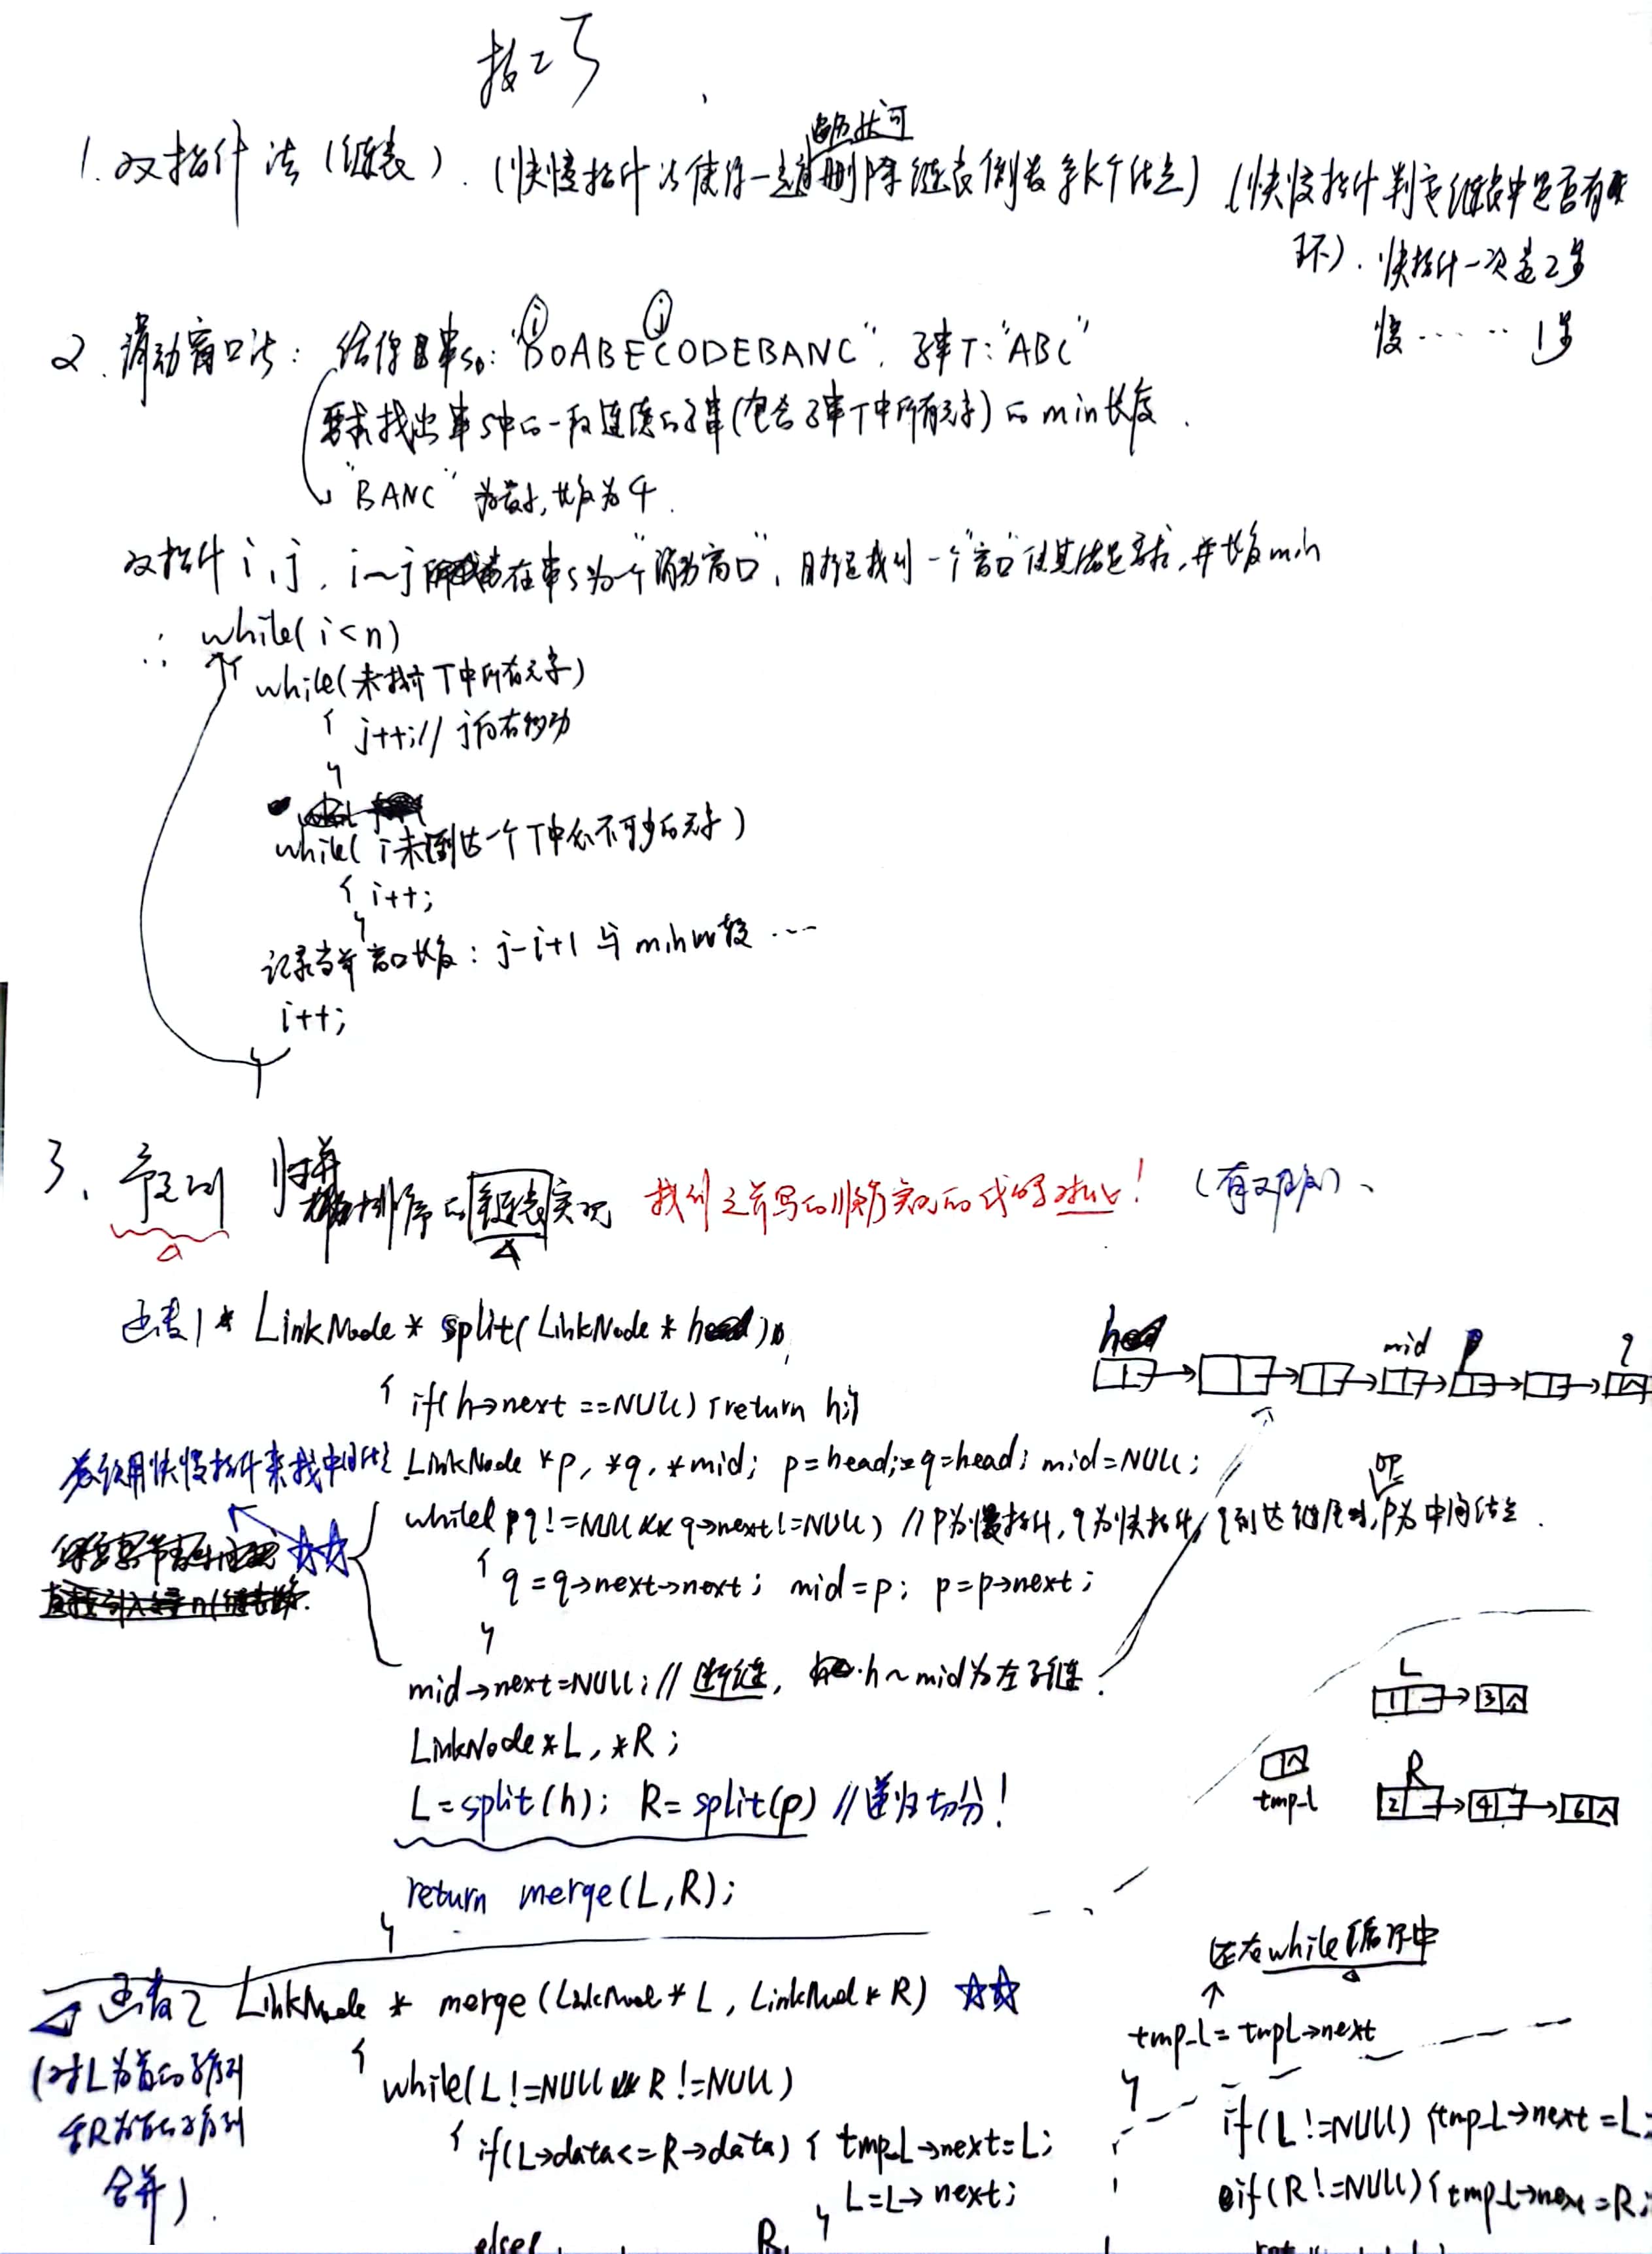 技巧
1. 双指针法（链表）. (快慢指针法使得一趟遍历就可删除链表倒数第K个结点) (快慢指针判定链表中是否有
环). 快指针一次走2步
慢 …… 1步
2. 滑动窗口法: 给你串S: "DOABECODEBANC", 子串T: "ABC"
i j
要求找出串S中的一段连续的子串(包含子串T中所有元素)的min长度.
"BANC" 为最小, 长度为4.
双指针i,j, i~j 在串S为一个"滑动窗口", 目标是找到一个"窗口"使其满足要求, 并长度min
∴ while(i<n)
while(未找齐T中所有元素)
{ j++; // j向右移动
}
while( i未到达一个T中必不可少的元素)
{ i++;
}
记录当前窗口长度: j-i+1 与min比较 …
i++;
}
3. 归并排序的链表实现 找到之前写的顺序实现的代码对比! (有区别)、
函数1* LinkNode * split(LinkNode * h)
{ if(h→next ==NULL) {return h;}
LinkNode *p, *q, *mid; p=head; q=head; mid=NULL;
考虑用快慢指针来找中间结点
while( q!=NULL && q→next!=NULL) // p为慢指针, q为快指针, q到达链尾时, p为中间结点.
{ q=q→next→next; mid=p; p=p→next;
}
mid→next=NULL; // 断链, h~mid为左子链.
LinkNode *L, *R;
L=split(h); R=split(p) // 递归切分!
return merge(L,R);
}
head mid p q
L
1 3
tmp_L
R
2 4 6
函数2 LinkNode * merge(LinkNode * L, LinkNode * R) ☆☆
(对L为首的子序列
和R为首的子序列
合并).
{ while(L!=NULL && R!=NULL)
{ if(L→data<=R→data) { tmp_L→next=L;
L=L→next;
}
else{
还在while循环中
↑
tmp_L= tmpL→next
}
if(L!=NULL) {tmp_L→next=L;
if(R!=NULL) {tmp_L→next=R;